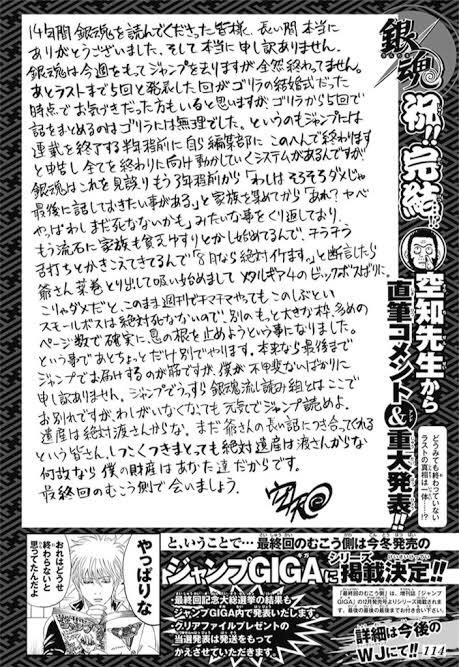 銀魂
祝!!完結…!?
空知先生から
直筆コメント&重大発表!!
どうみても終わっていない
ラストの真相は一体……!?
14年間 銀魂を読んでくださった皆様、長い間本当に
ありがとうございました、そして本当に申し訳ありません。
銀魂は今週をもってジャンプを去りますが全然終わってません。
あとラストまで5回と発表した回がゴリラの結婚式だった
時点でお気づきだった方もいると思いますが、ゴリラから5回で
話をまとめるのはゴリラには無理でした、というのもジャンプには
連載を終了する半年程前に自ら編集部に このへんで終わります
と申告し全てを終わりに向け動かしていくシステムがあるんですが
銀魂はこれを見誤りもう3年程前から「わしは そろそろダメじゃ
最後に話しておきたい事がある」と家族を集めてから「あれ?ヤベ
やっぱわしまだ死なないかも」みたいな事をくり返しており、
もう流石に家族も貧乏ゆすりとかし始めてるんで、そうそう
舌打ちとかきこえてきてるんで「8月から絶対イけます。」と断言したら
爺さん葉巻とり出して吸い始めまして メタルギア4のビッグボスばりに。
こりゃダメだと、このまま週刊でチマチマやっても このしぶとい
スモールボスは絶対死なないので、別のもっと大きな枠、多めの
ページ数で確実に息の根を止めようという事になりました。
という事であとちょっとだけ別でやります。本来なら最後まで
ジャンプでお届けするのが筋ですが、僕が不甲斐ないばかりに
申し訳ありません。ジャンプでうっすら銀魂流し読み組とはここで
お別れですが、わしがいなくなっても元気でジャンプ読めよ。
遺産は絶対渡さんからな。まだ爺さんの長い話につき合ってくれる
という皆さん、しつこくつきまとっても絶対遺産は渡さんからな
何故なら僕の財産はあなた達だからです。
最終回のむこう側で会いましょう。
やっぱりな
おれはどうせ
終わらないと
思ってたんだよ
と、いうことで…最終回のむこう側は今冬発売の
ジャンプGIGAにシリーズ掲載決定!!
最終回記念大総選挙の結果も
ジャンプGIGA内で発表いたします。
クリアファイルプレゼントの
当選発表は発送をもって
かえさせていただきます。
「最終回のむこう側」は、増刊誌「ジャンプ
GIGA」の12月発売号よりシリーズ掲載されま
す。最後の最後の最後までお付き合い下さい。
詳細は今後の
WJにて!!
114